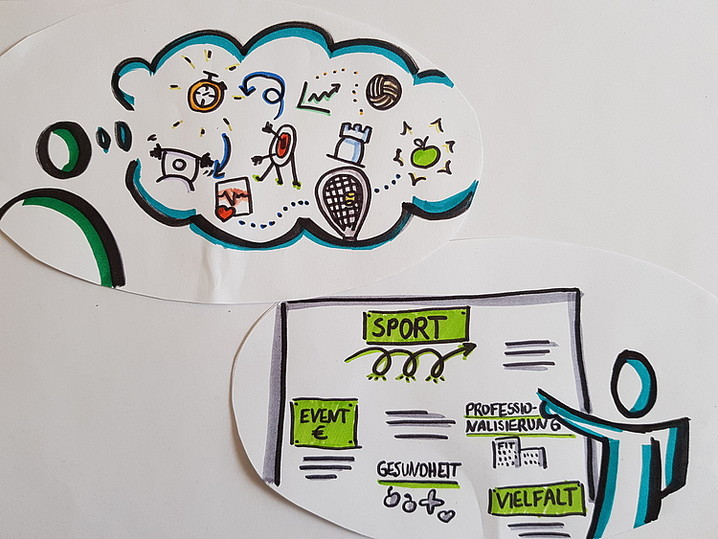 SPORT
EVENT
€
PROFESSIO-
NALISIERUNG
FIT
GESUNDHEIT
VIELFALT